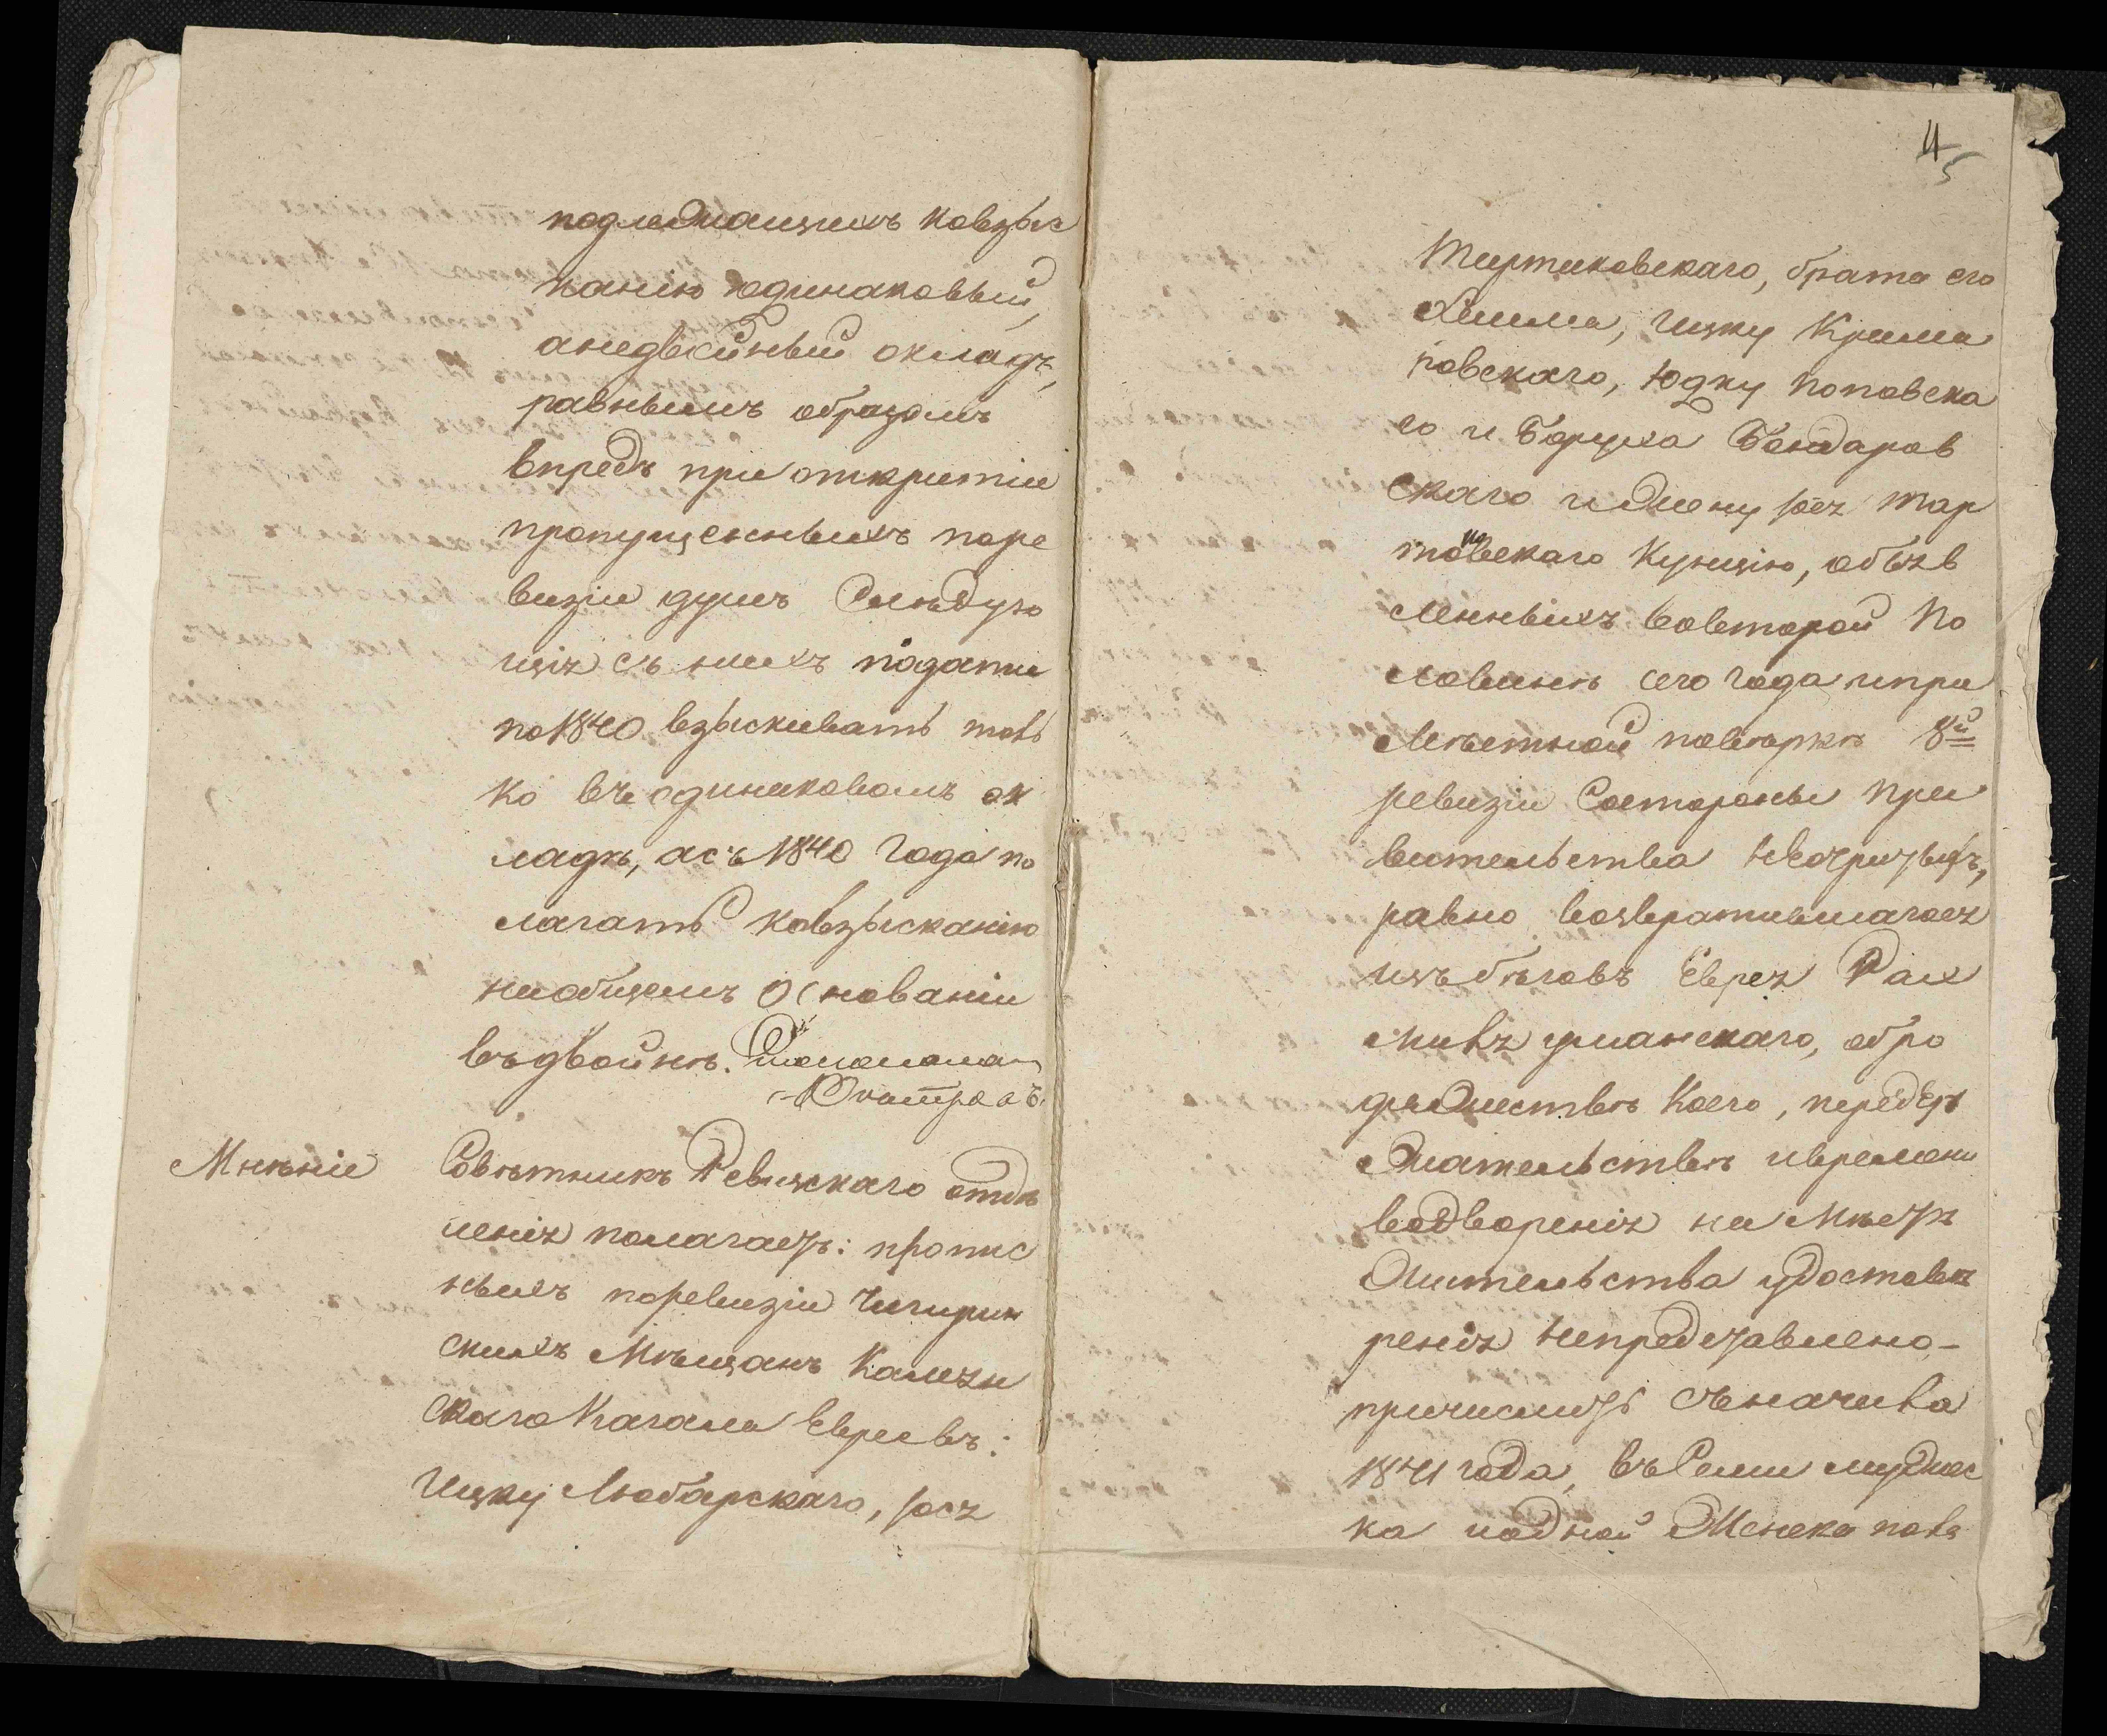 подлежащихъ ковзыс
канію юдинаковый,
анедвойный окладъ,
равнымъ образомъ
впредь при открытіи
пропущенныхъ поре
визіи душъ Слѣдую
щія съ нихъ подати
по 1840 взыскивать толь
ко въ одинаковомъ ок
ладѣ, асъ 1840 года по
лагать ковзысканію
наобщемъ Основаніи
въдвойнѣ.
Мнѣніе
Совѣтникъ Ревизскаго отдѣ
ленія полагаетъ: пропис
ныхъ поревизіи Чигирин
скихъ Мѣщанъ Камезн
скаго Кагала Евреевъ:
Ицку Любарскаго, Іося
4 5
Тиртиковскаго, брата его
Хаима, Ицку Крима
ровскаго, Юдку Поповска
го и Боруха Бондаров
скаго и жену Іося Тар
товскаго Куницю, объяв
ленныхъ вовторой По
ловинѣ сего года ипри
Мѣстной повѣркѣ 8й
ревизіи Состороны Пра
вительства Некогризыхъ,
равно возвратившагося
изъбѣговъ Еврея Рах
миля уманскаго, обро
дяжествѣ Коего, передер
жательствѣ ивремени
водворенія на Мѣстѣ
Жительства удостовѣ
ренія Непредставлено-
причислить Съначала
1841 года, въ Семи мужес
ка иодной Женска пола